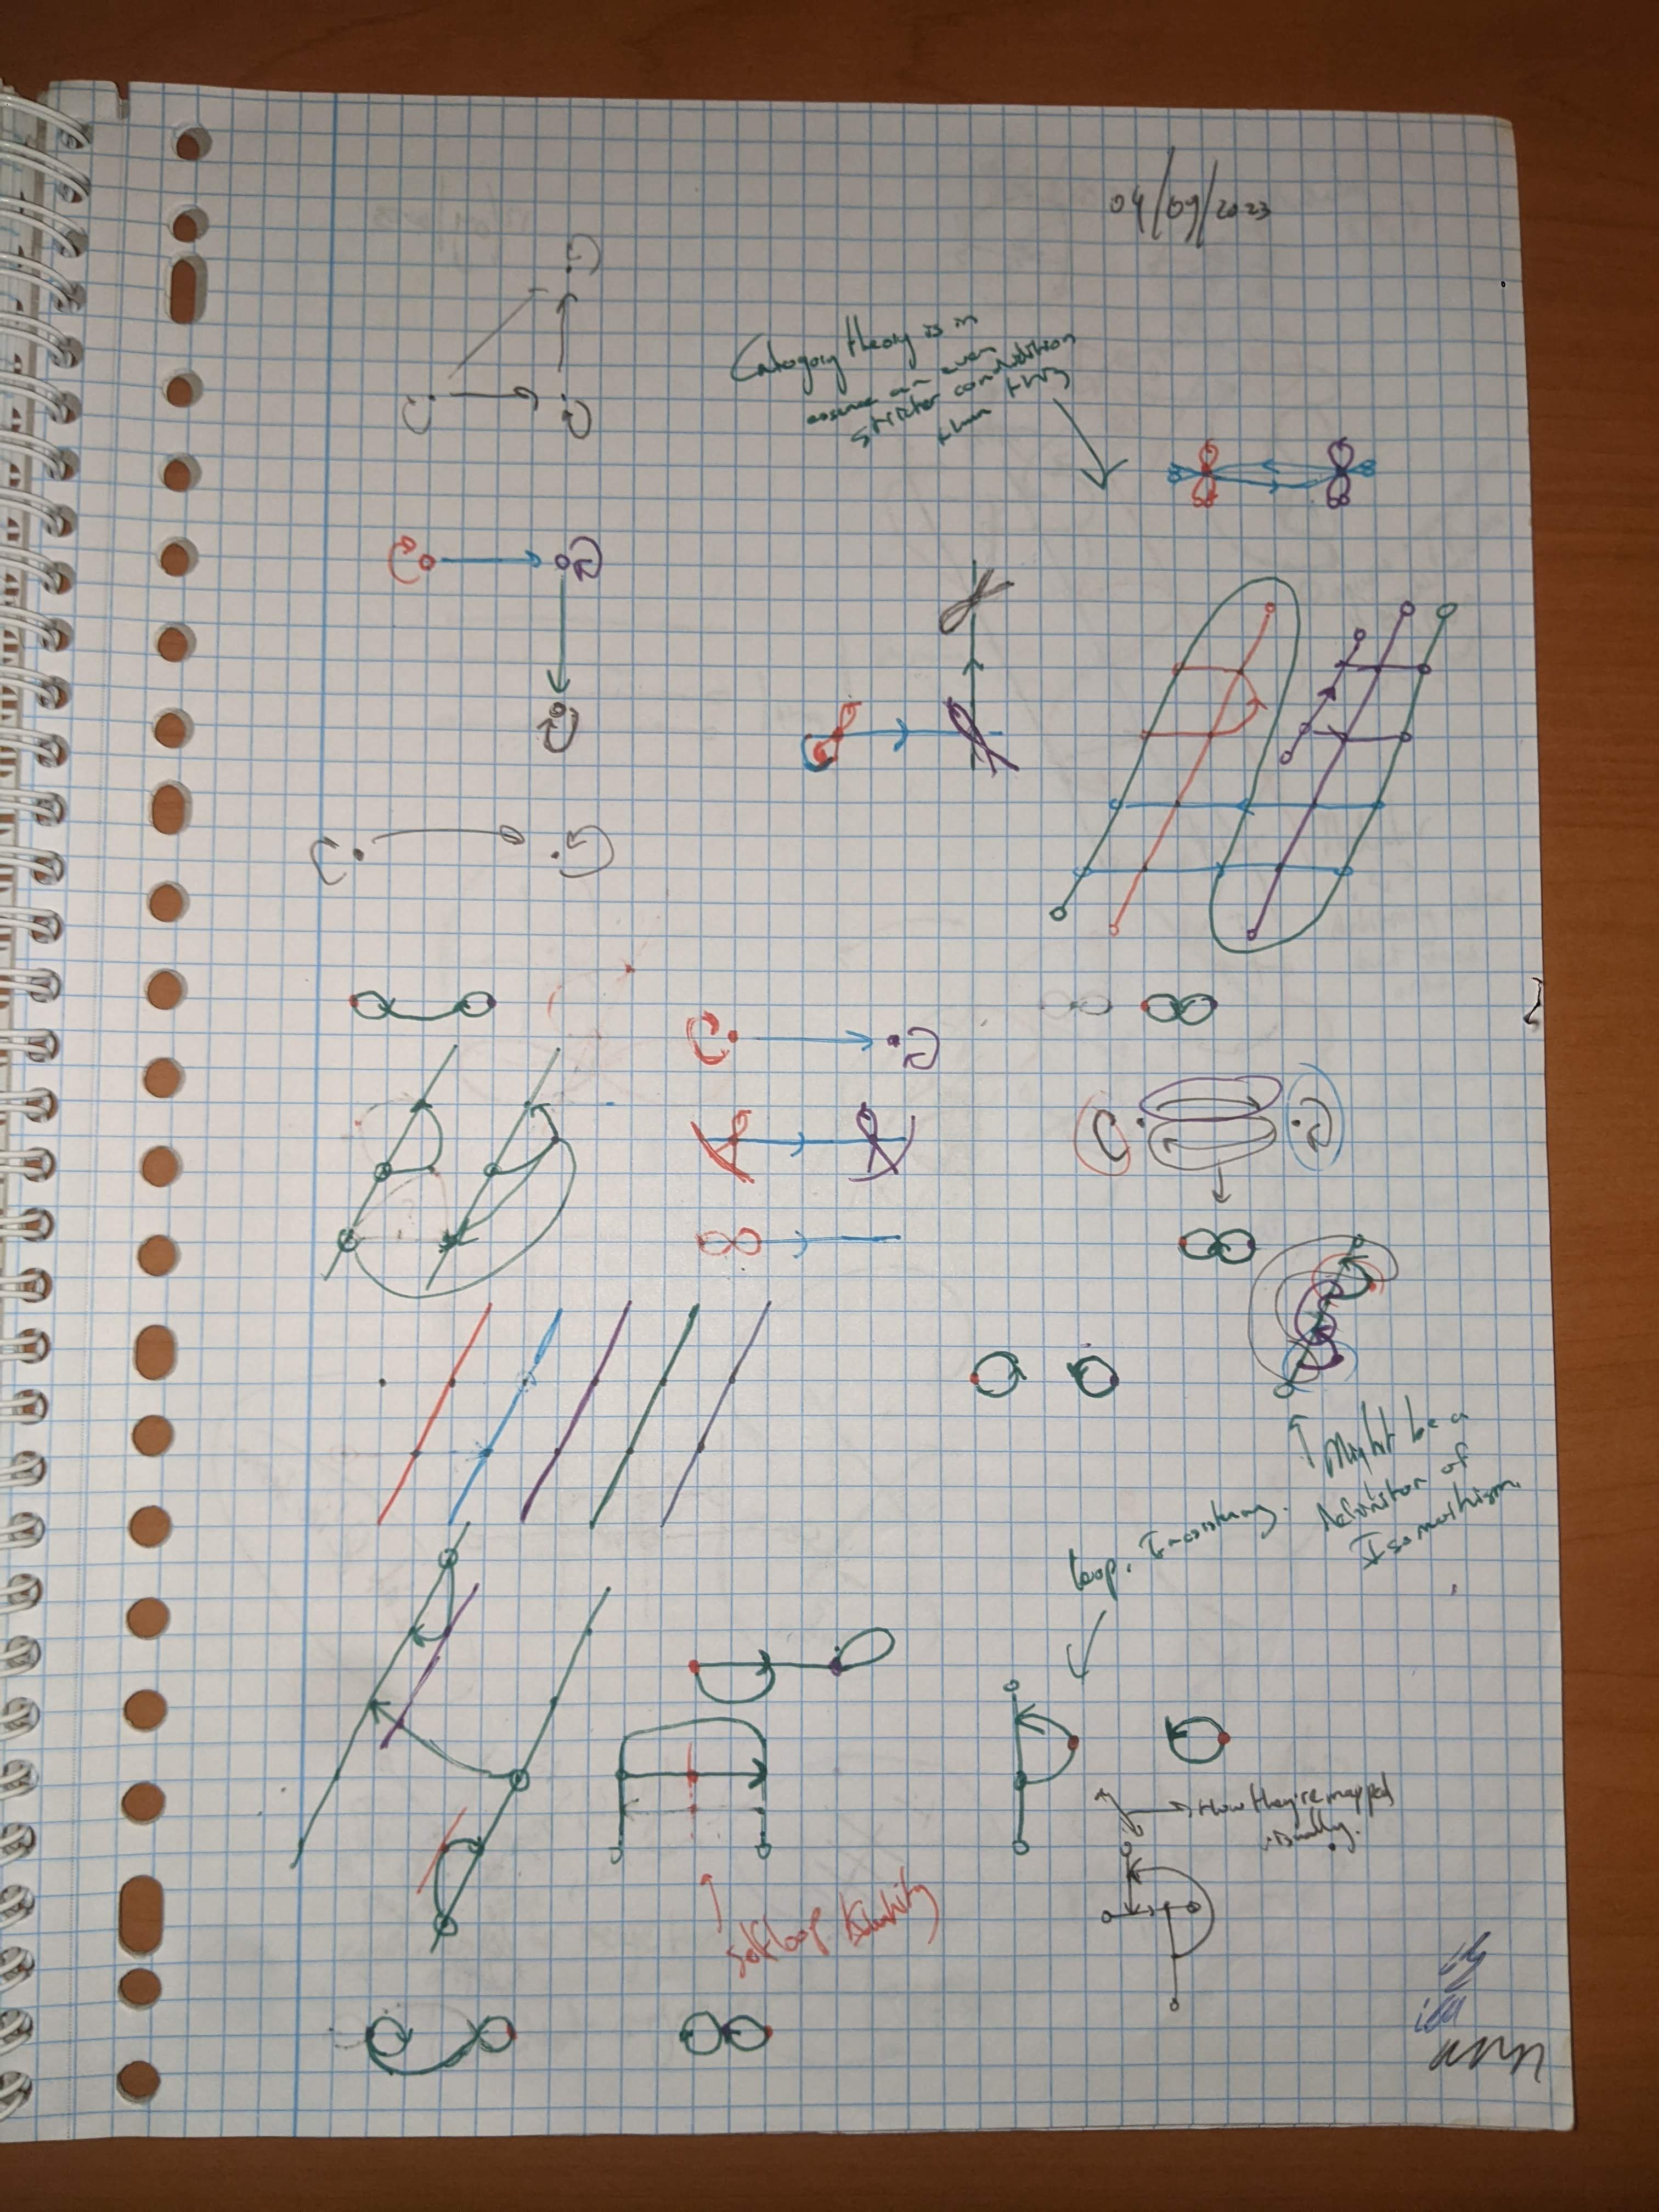 04/09/2023
Category theory is in
essence an even
stricter condition
than this
Might be a
definition of
Isomorphism.
Loop.
How they're mapped
visually.
self loop identity